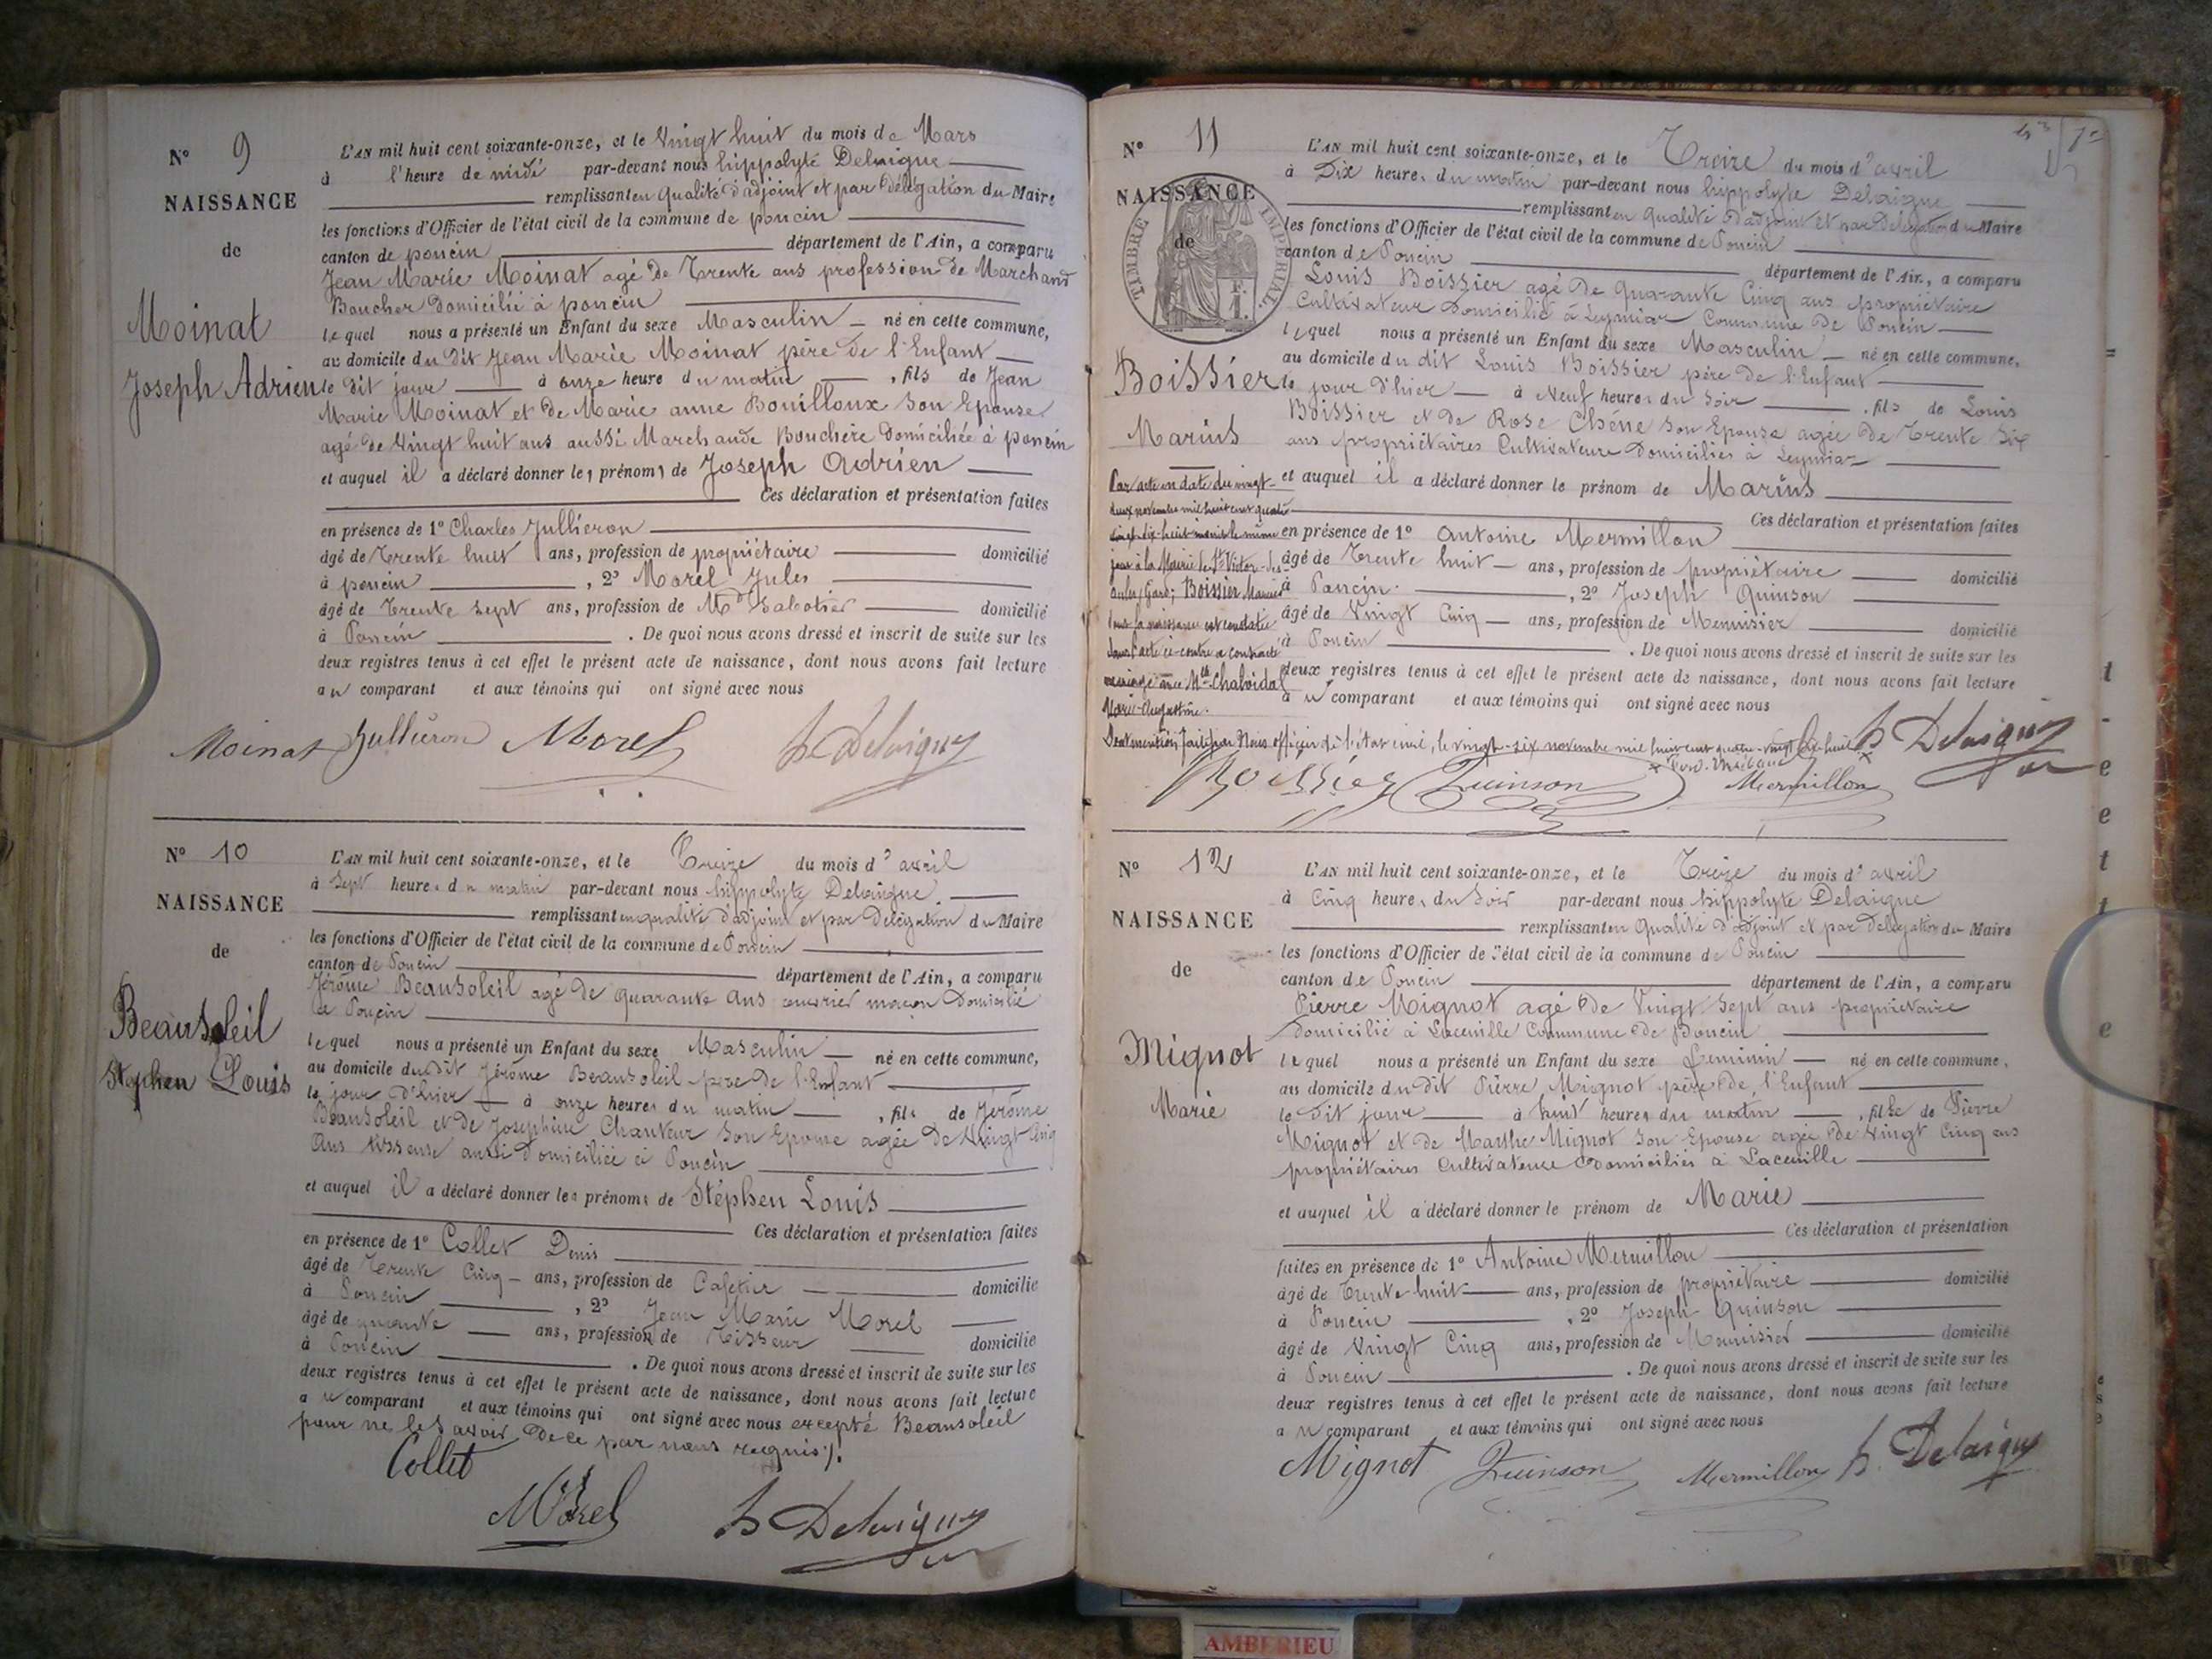 N° 9
NAISSANCE
de
Moinat
Joseph Adrien
L'AN mil huit cent soixante-onze, et le Vingt huit du mois de Mars
à l'heure de midi par-devant nous hippolyte Delaigue
remplissant en qualité d'adjoint et par délégation du Maire
les fonctions d'Officier de l'état civil de la commune de poncin
canton de poncin département de l'Ain, a comparu
Jean Marie Moinat agé de Trente ans profession de Marchand
Boucher domicilié à poncin
lequel nous a présenté un Enfant du sexe Masculin né en cette commune,
au domicile du dit Jean Marie Moinat père de l'Enfant
le dit jour à onze heure du matin, fils de Jean
Marie Moinat et de Marie anne Bouilloux son Epouse
agé de Vingt huit ans aussi Marchande Bouchère domiciliée à poncin
et auquel il a déclaré donner les prénoms de Joseph Adrien
Ces déclaration et présentation faites
en présence de 1° Charles Jullieron
âgé de Trente huit ans, profession de propriétaire domicilié
à poncin, 2° Morel Jules
âgé de Trente sept ans, profession de Md Sabotier domicilié
à Poncin. De quoi nous avons dressé et inscrit de suite sur les
deux registres tenus à cet effet le présent acte de naissance, dont nous avons fait lecture
au comparant et aux témoins qui ont signé avec nous
Moinat Jullieron Morel h Delaigue
N° 10
NAISSANCE
de
Beausoleil
Stephen Louis
L'AN mil huit cent soixante-onze, et le Treize du mois d'avril
à Sept heures du matin par-devant nous hippolyte Delaigue
remplissant en qualité d'adjoint et par délégation du Maire
les fonctions d'Officier de l'état civil de la commune de Poncin
canton de Poncin département de l'Ain, a comparu
Jérôme Beausoleil agé de quarante ans ouvrier maçon domicilié
à Poncin
lequel nous a présenté un Enfant du sexe Masculin né en cette commune,
au domicile du dit Jérôme Beausoleil père de l'Enfant
le jour d'hier à onze heures du matin, fils de Jérôme
Beausoleil et de Josephine Chanteur son Epouse agée de Vingt Cinq
ans tisseuse aussi domiciliée à Poncin
et auquel il a déclaré donner les prénoms de Stéphen Louis
Ces déclaration et présentation faites
en présence de 1° Collet Denis
âgé de Trente Cinq ans, profession de Cafetier domicilié
à Poncin, 2° Jean Marie Morel
âgé de quarante ans, profession de Tisseur domicilié
à Poncin. De quoi nous avons dressé et inscrit de suite sur les
deux registres tenus à cet effet le présent acte de naissance, dont nous avons fait lecture
au comparant et aux témoins qui ont signé avec nous excepté Beausoleil
pour ne les avoir de ce par nous requis
Collet
Morel h Delaigue
N° 11
NAISSANCE
de
TIMBRE IMPERIAL
Boissier
Marius
L'AN mil huit cent soixante-onze, et le Treize du mois d'avril
à Dix heures du matin par-devant nous hippolyte Delaigue
remplissant en qualité d'adjoint et par délégation du Maire
les fonctions d'Officier de l'état civil de la commune de Poncin
canton de Poncin département de l'Ain, a comparu
Louis Boissier agé de quarante Cinq ans propriétaire
Cultivateur domicilié à Leymiaz Commune de Poncin
lequel nous a présenté un Enfant du sexe Masculin né en cette commune,
au domicile du dit Louis Boissier père de l'Enfant
le jour d'hier à Neuf heures du soir, fils de Louis
Boissier et de Rose Chêne son Epouse agée de Trente Six
ans propriétaires Cultivateurs domiciliés à Leymiaz
et auquel il a déclaré donner le prénom de Marius
Ces déclaration et présentation faites
en présence de 1° Antoine Mermillon
âgé de Trente huit ans, profession de propriétaire domicilié
à Poncin, 2° Joseph Quinson
âgé de Vingt Cinq ans, profession de Menuisier domicilié
à Poncin. De quoi nous avons dressé et inscrit de suite sur les
deux registres tenus à cet effet le présent acte de naissance, dont nous avons fait lecture
au comparant et aux témoins qui ont signé avec nous
Par acte en date du vingt-
deux novembre mil huit cent quatre
vingt-dix-huit inscrit le même
jour à la Mairie de St Victor-des
oules, Gard; Boissier Marius
dont la naissance est constatée
dans l'acte ci-contre a contracté
mariage avec Mlle Chabidal
Marie-Augustine.
Dont mention faite par Nous officier de l'état civil, le vingt-six novembre mil huit cent quatre-vingt dix huit
h Delaigue
Boissier Quinson Mermillon
N° 12
NAISSANCE
de
Mignot
Marie
L'AN mil huit cent soixante-onze, et le Treize du mois d'avril
à Cinq heures du Soir par-devant nous hippolyte Delaigue
remplissant en qualité d'adjoint et par délégation du Maire
les fonctions d'Officier de l'état civil de la commune de Poncin
canton de Poncin département de l'Ain, a comparu
Pierre Mignot agé de Vingt Sept ans propriétaire
domicilié à Lacuille Commune de Poncin
lequel nous a présenté un Enfant du sexe Feminin né en cette commune,
au domicile du dit Pierre Mignot père de l'Enfant
le dit jour à huit heures du matin, fille de Pierre
Mignot et de Marthe Mignot son Epouse agée de Vingt Cinq ans
propriétaires Cultivateurs domiciliés à Lacuille
et auquel il a déclaré donner le prénom de Marie
Ces déclaration et présentation
faites en présence de 1° Antoine Mermillon
âgé de Trente huit ans, profession de propriétaire domicilié
à Poncin, 2° Joseph Quinson
âgé de Vingt Cinq ans, profession de Menuisier domicilié
à Poncin. De quoi nous avons dressé et inscrit de suite sur les
deux registres tenus à cet effet le présent acte de naissance, dont nous avons fait lecture
au comparant et aux témoins qui ont signé avec nous
Mignot Quinson Mermillon h. Delaigue
AMBERIEU